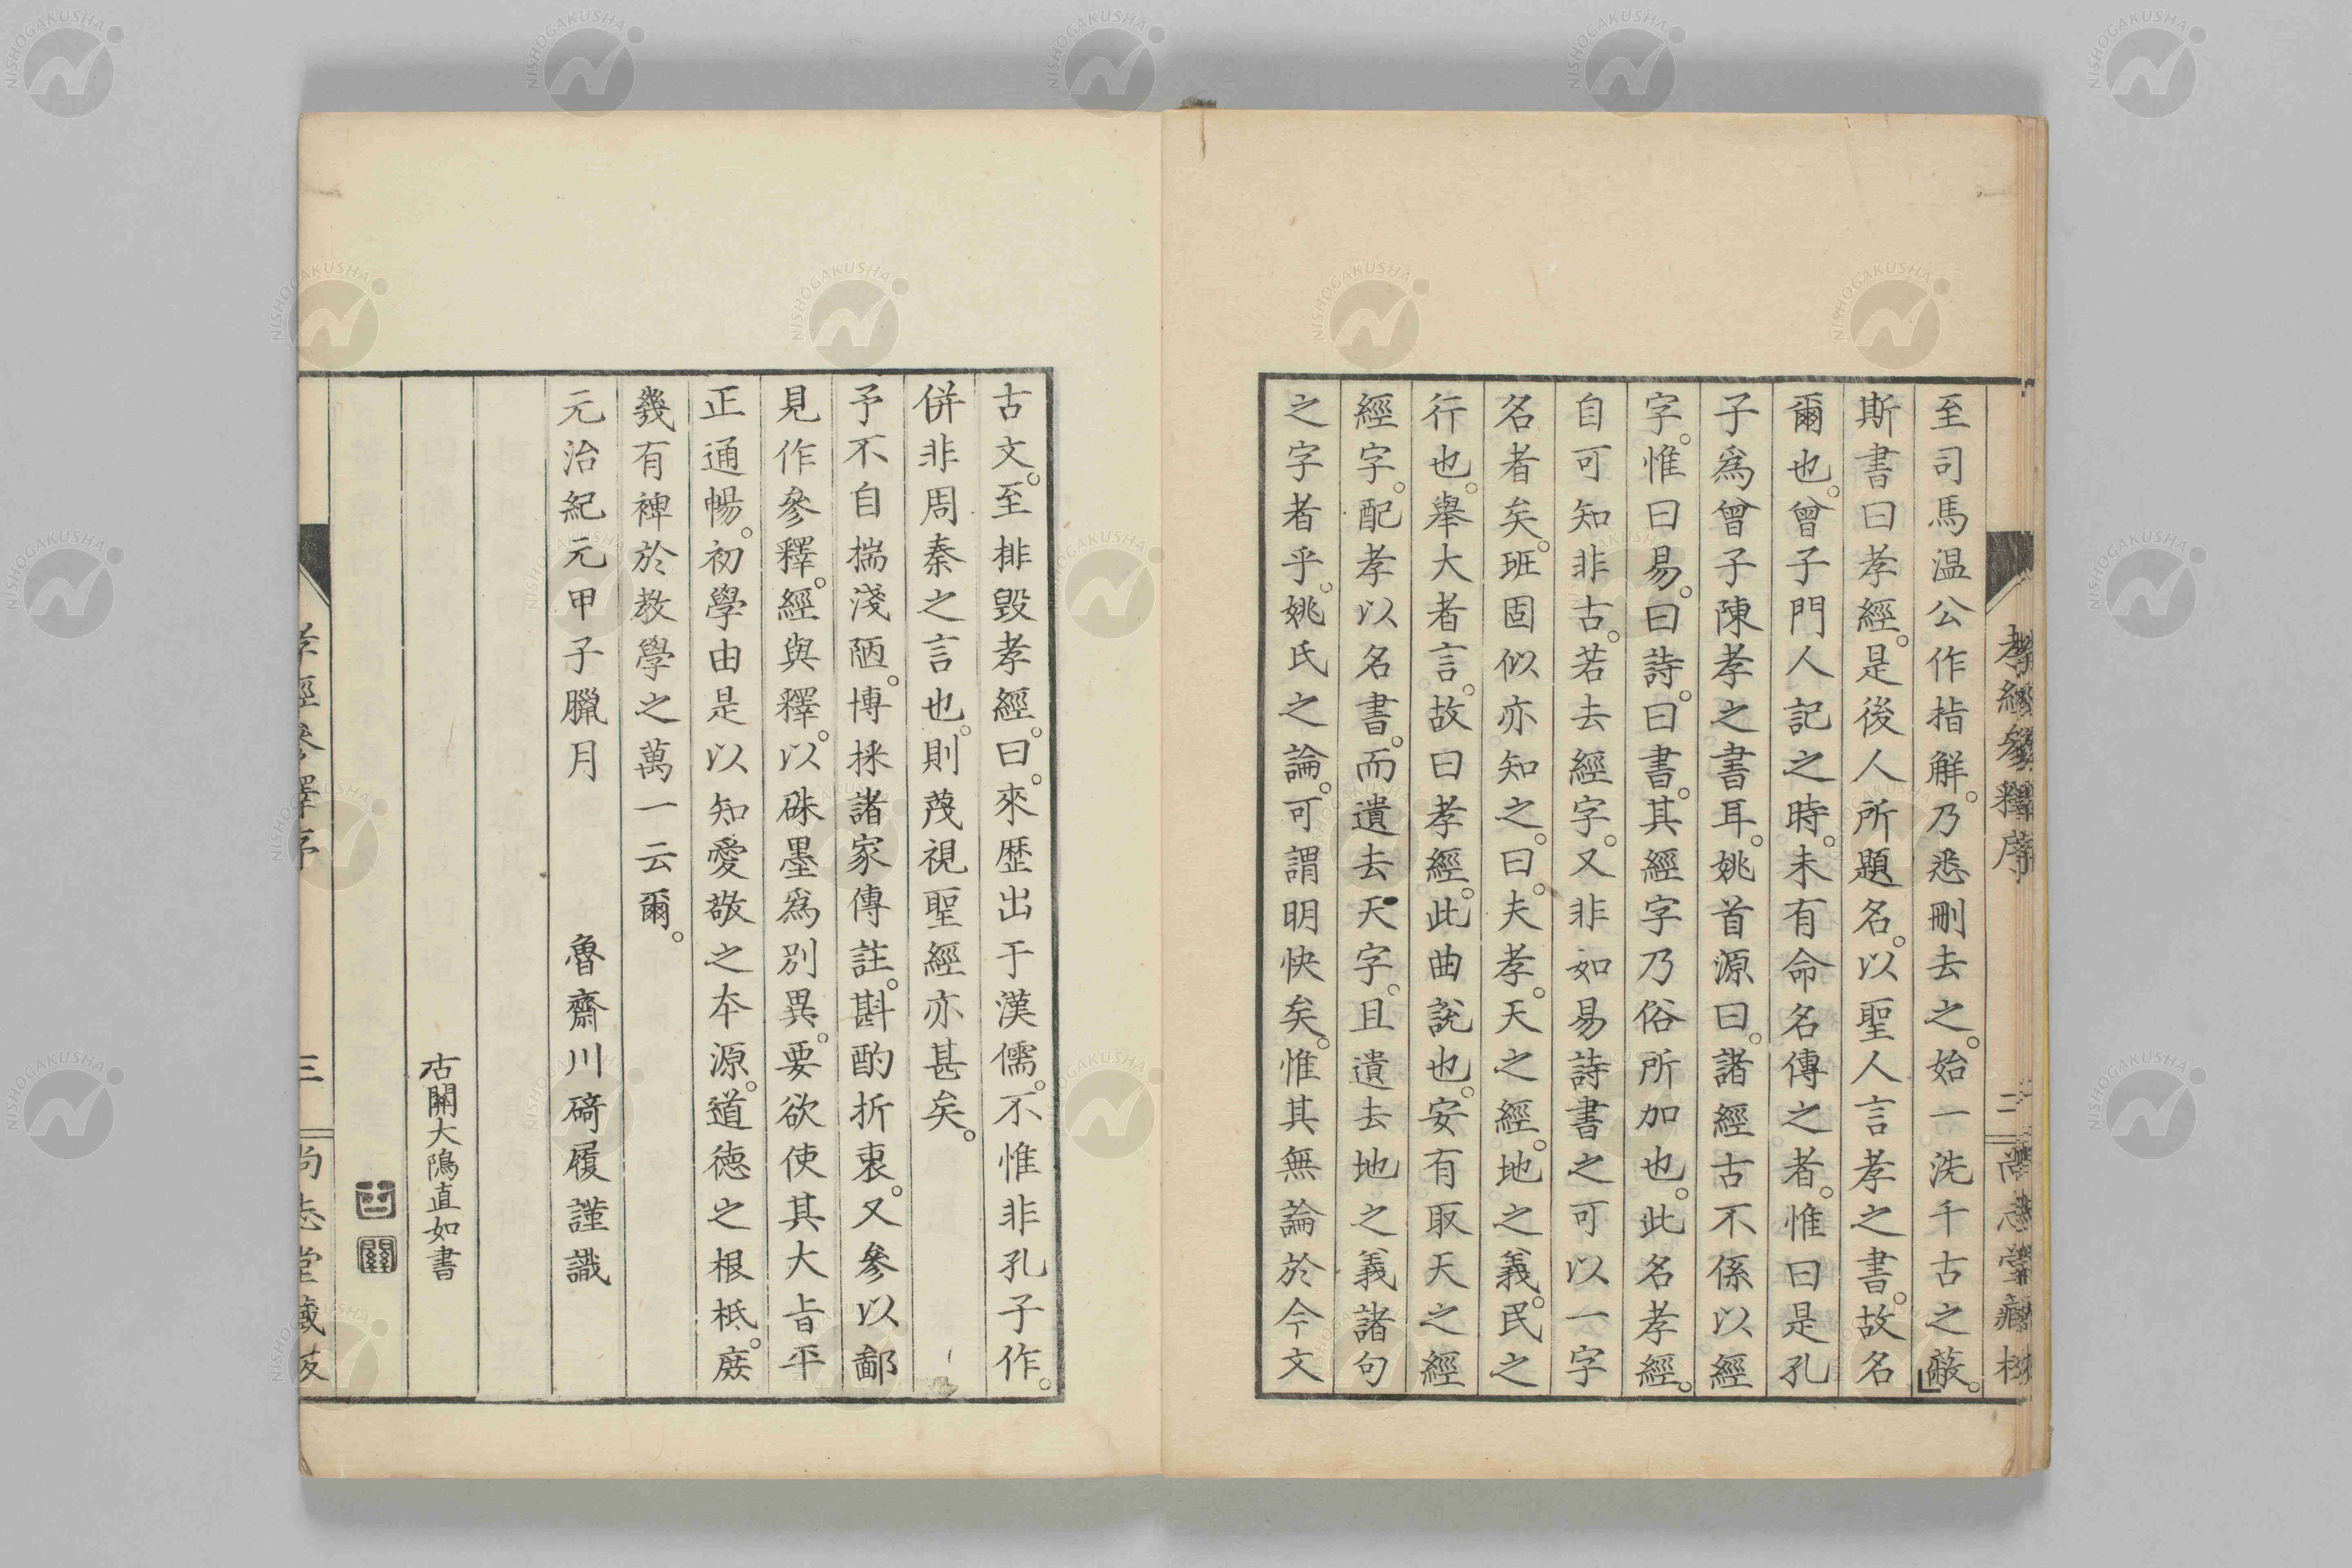 孝經參釋序
二
尚志堂藏板
至司馬温公作指解。乃悉刪去之。始一洗千古之蔽。
斯書曰孝經。是後人所題名。以聖人言孝之書。故名
爾也。曾子門人記之時。未有命名傳之者。惟曰是孔
子爲曾子陳孝之書耳。姚首源曰。諸經古不係以經
字。惟曰易。曰詩。曰書。其經字乃俗所加也。此名孝經。
自可知非古。若去經字。又非如易詩書之可以一字
名者矣。班固似亦知之。曰。夫孝。天之經。地之義。民之
行也。舉大者言。故曰孝經。此曲説也。安有取天之經
經字。配孝以名書。而遺去天字。且遺去地之義諸句
之字者乎。姚氏之論。可謂明快矣。惟其無論於今文
古文。至排毀孝經。曰。來歷出于漢儒。不惟非孔子作。
併非周秦之言也。則蔑視聖經亦甚矣。
予不自揣淺陋。博採諸家傳註。斟酌折衷。又參以鄙
見作參釋。經與釋。以硃墨爲別異。要欲使其大旨平
正通暢。初學由是以知愛敬之本源。道徳之根柢。庶
幾有裨於教學之萬一云爾。
元治紀元甲子臘月
魯齋川碕履謹識
古關大隝直如書
孝經參釋序
三
尚志堂藏板
NISHOGAKUSHA